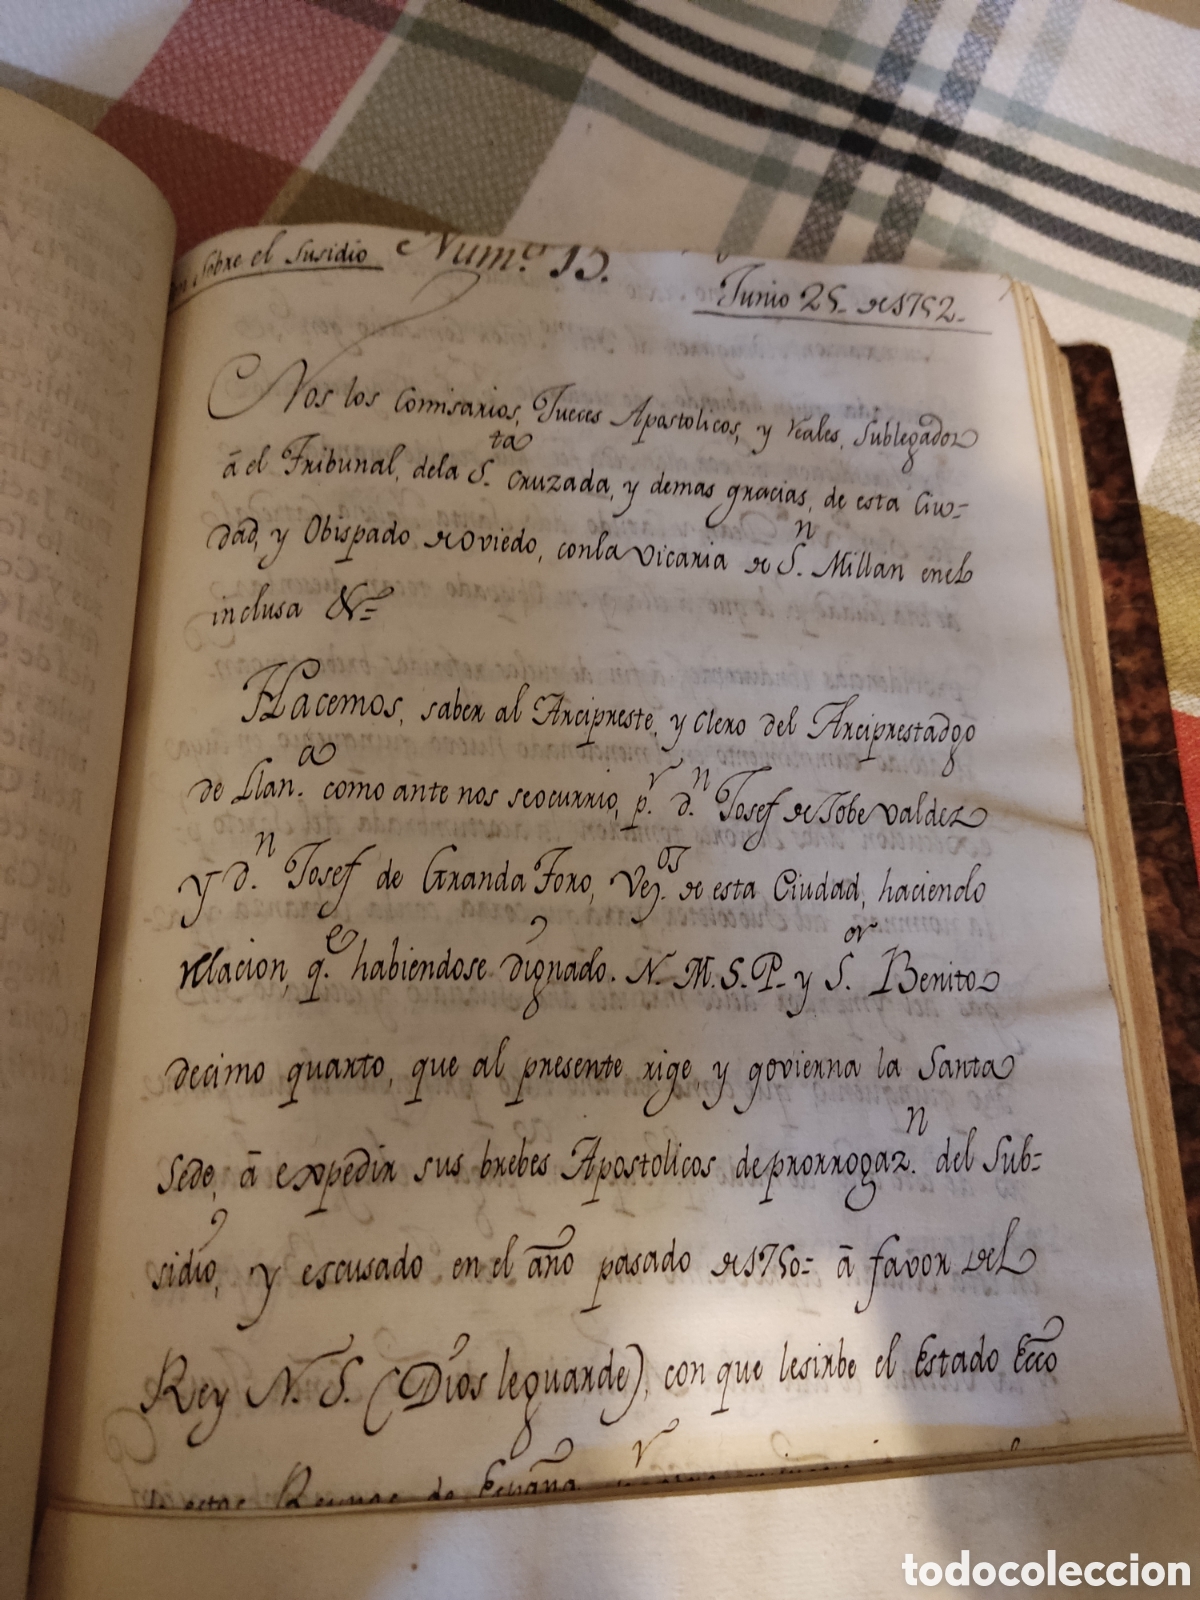 Sobre el Susidio Num.º 15.
Junio 25. de 1752.
Nos los Comisarios, Jueces Apostolicos, y reales, Sublegados
ā el Tribunal, dela S.ta Cruzada, y demas gracias, de esta Ciu=
dad, y Obispado de Oviedo, conla Vicaria de S.n Millan en el
inclusa &=
Hacemos, saber al Arcipreste, y Clero del Arciprestadgo
de Llan.a como ante nos seocurrio, p.r d.n Josef de Tobe Valdez
Y d.n Josef de Granda Foro, Vez.os de esta Ciudad, haciendo
relacion, q.e habiendose dignado. N. M. S. P. y S.or Benito
decimo quarto, que al presente rige, y govierna la Santa
Sede, ā expedir sus brebes Apostolicos deprorrogaz.n del Sub=
sidio, y escusado en el año pasado de 1750= ā favor del
Rey N. S. (Dios leguarde), con que lesirbe el Estado Ecco
de estos Reynos de España
todocoleccion